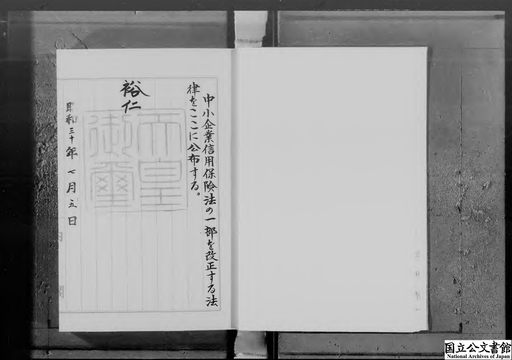 中小企業信用保険法の一部を改正する法
律をここに公布する。
裕仁
天皇
御璽
昭和三十年七月五日
国立公文書館
National Archives of Japan